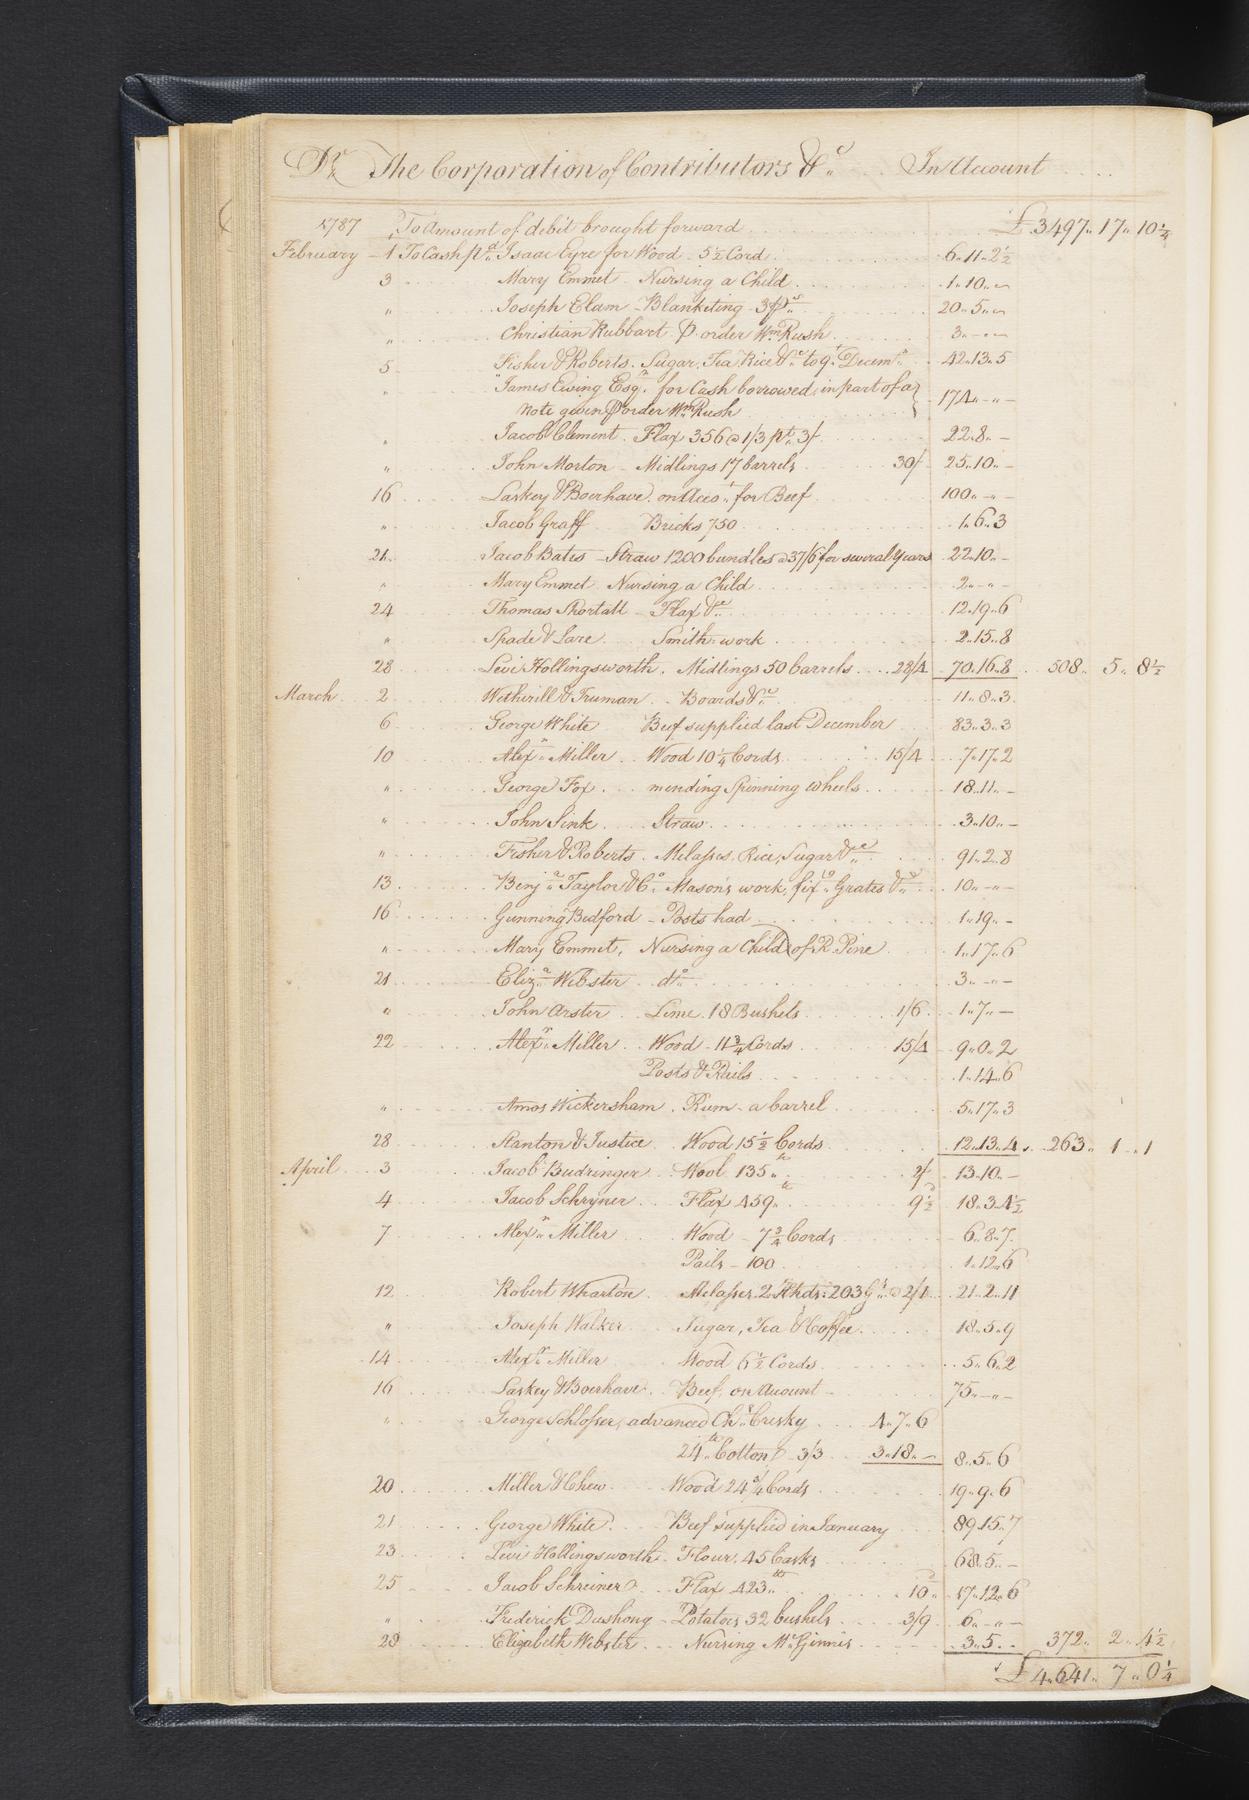 Dr. The Corporation of Contributors &c. In Account
1787 To Amount of debit brought forward £3497.. 17.. 10 1/4
February 1 To Cash pd. Isaac Eyre for Wood 5 1/2 Cord 6..11..2 1/2
3 Mary Emmet Nursing a Child 1..10..-
" Joseph Elam Blanketing 3 ps. 20..5..-
" Christian Rubbart ⅌ order Wm Rush 3..-..-
5 Fisher & Roberts. Sugar, Tea Rice &c. to 9t. Decemr. 42..13..5
" James Ewing Esqr. for Cash borrowed, in part of a
Note given ⅌ order Wm Rush 174..-..-
" Jacob Clement. Flax 356 @ 1/3 pt. 3/ 22..8..-
" John Morton Midlings 17 barrels 30/ 25..10..-
16 Laskey & Boerhave. on Acct. for Beef 100..-..-
" Jacob Graff Bricks 750 1..6..3
21 Jacob Bates Straw 1200 bundles @ 37/6 for several Years 22..10..-
" Mary Emmet Nursing a Child 2..-..-
24 Thomas Shortall Flax &c. 12..19..6
" Spade & Sare Smith work 2..15..8
28 Levi Hollingsworth. Midlings 50 barrels 28/4 70..16..8 508.. 5.. 8 1/2
March 2 Wetherill & Truman Boards &c. 11..8..3
6 George White Beef supplied last December 83..3..3
10 Alexr. Miller Wood 10 1/4 Cords 15/4 7..17..2
" George Fox mending Spinning wheels 18..11..-
" John Sink Straw 3..10..-
" Fisher & Roberts. Melasses, Rice, Sugar &c. 91..2..8
13 Benja. Taylor & Co. Mason's work, fixg. Grates &c. 10..-..-
16 Gunning Bedford Posts had 1..19..-
" Mary Emmet, Nursing a Child of R. Pine 1..17..6
21 Eliza. Webster do. 3..-..-
" John Arster Lime. 18 Bushels 1/6 1..7..-
22 Alexr. Miller Wood 11 3/4 Cords 15/4 9..0..2
Posts & Rails 1..14..6
" Amos Wickersham. Rum a barrel 5..17..3
28 Stanton & Justice Wood 15 1/2 Cords 12..13..4 263.. 1..1
April 3 Jacob Budringer Wool 135 lb. 2/ 13..10..-
4 Jacob Schryner Flax 459 lb. 9 1/2 d 18..3..4 1/2
7 Alexr. Miller Wood 7 3/4 Cords 6..8..7
Pails 100 1..12..6
12 Robert Wharton Melasses 2 Hhds: 203 Gs. @ 2/1 21..2..11
" Joseph Walker Sugar, Tea & Coffee 18..5..9
14 Alexr. Miller Wood 6 1/2 Cords 5..6..2
16 Laskey & Boerhave Beef, on Account 75..-..-
" George Schlosser, advanced Chs. Cresky 4..7..6
24 lb. Cotton 3/3 3..18..- 8..5..6
20 Miller & Chew Wood 24 3/4 Cords 19..9..6
21 George White Beef supplied in January 89..15..7
23 Levi Hollingsworth Flour, 45 Casks 68..5..-
25 Jacob Schreiner Flax 423 lb. 10 d. 17..12..6
" Frederick Dushong Potatoes 32 bushels 3/9 6..-..-
29 Elizabeth Webster Nursing McGinnis 3..5..- 372.. 2.. 4 1/2
£4641.. 7.. 0 1/4